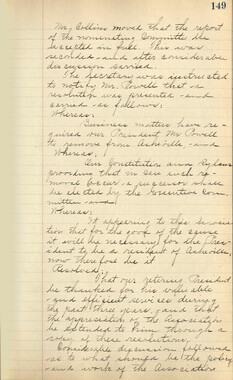 149
Mr. Collins moved that the report
of the nominating Committee be
accepted in full. This was
seconded and after considerable
discussion carried.
The Secretary was instructed
to notify Mr. Powell that a
resolution was presented and
carried as follows:
Whereas,
Business matters have re-
quired our President Mr Powell
to remove from Asheville, and
Whereas,
Our Constitution and Bylaws
providing that in case such re-
moval occur a successor shall
be elected by the Executive Com-
mittee and
Whereas:
It appearing to this
tion that for the good of the
it will be necessary for the Pres-
ident to be a resident of Asheville,
now therefore be it
Resolved,
That our retiring President
be thanked for his valuable
and efficient services during
the past three years, and that
the appreciation of the Association
be extended to him through a
copy of these resolutions.
Considerable discussion followed
as to what should be the policy
and work of the Association